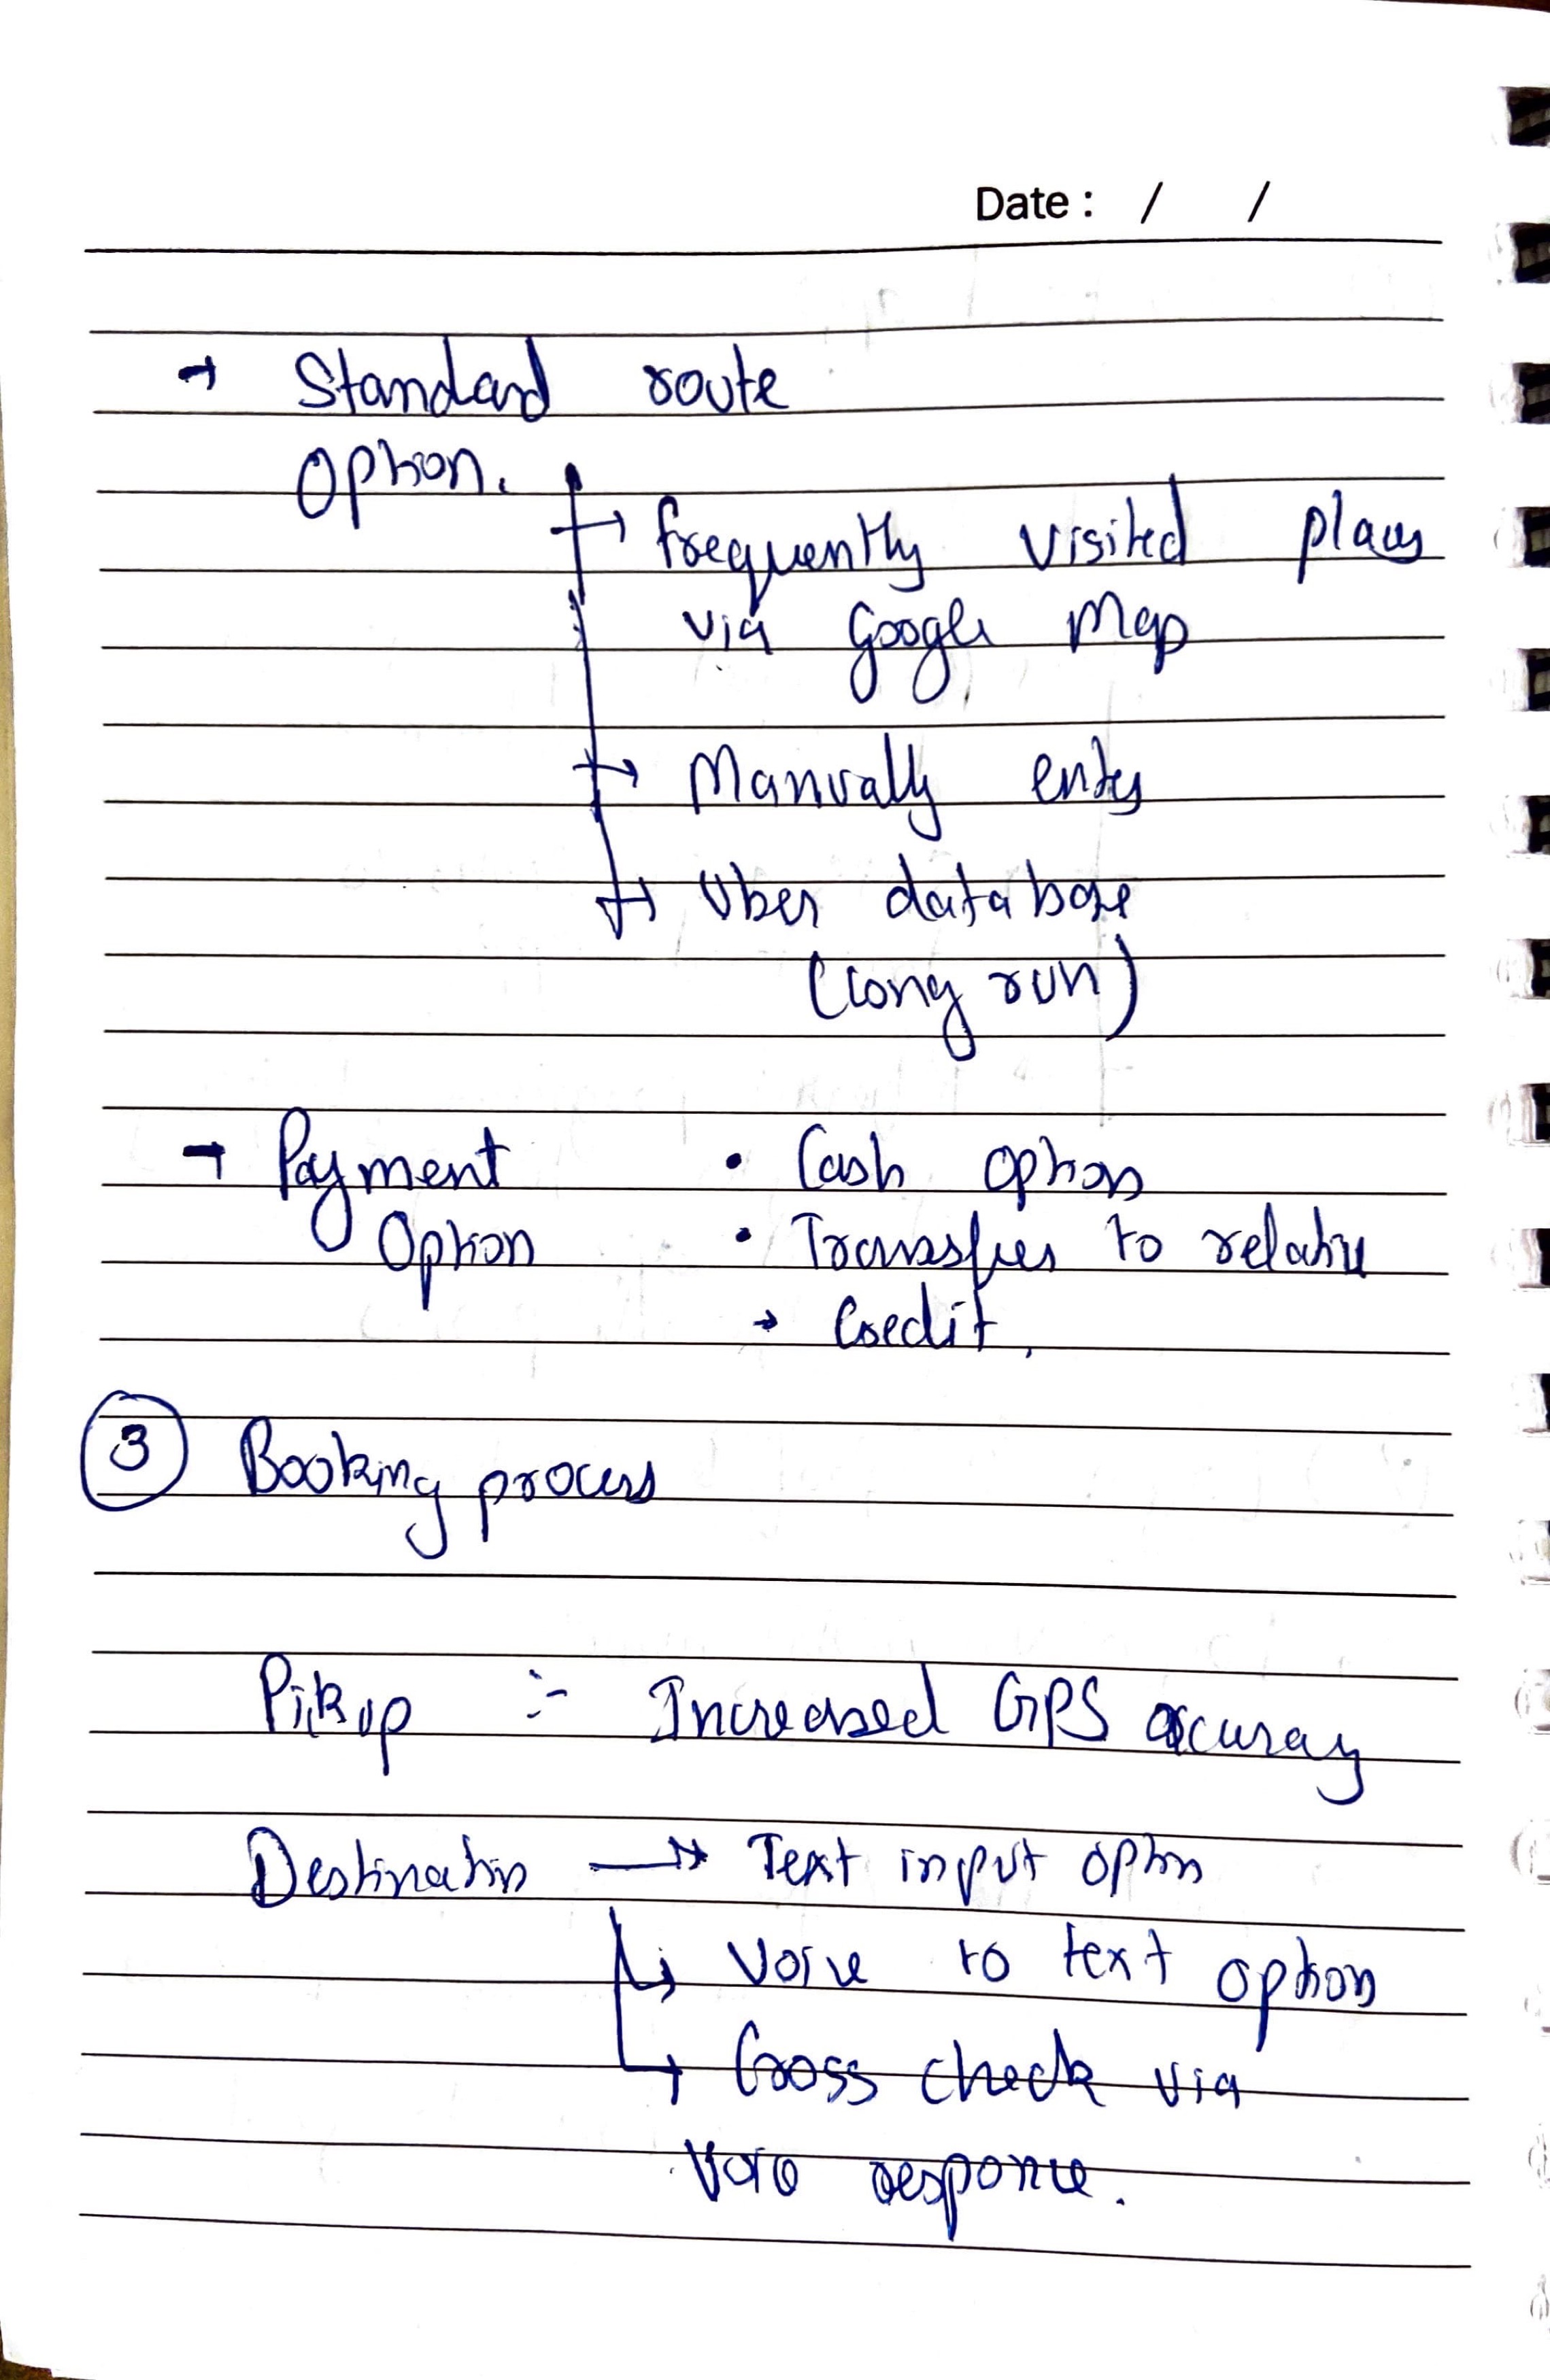 Date : / /
→ Standard route
Option.
→ frequently visited places
via Google Map
→ Manually entry
→ Uber database
(long run)
→ Payment • Cash option
Option • Transfer to relative
→ Credit,
③ Booking process
Pikup :- Increased GPS accuray
Destination → Text input option
↳ Voice to text option
↳ Cross check via
Voice response.